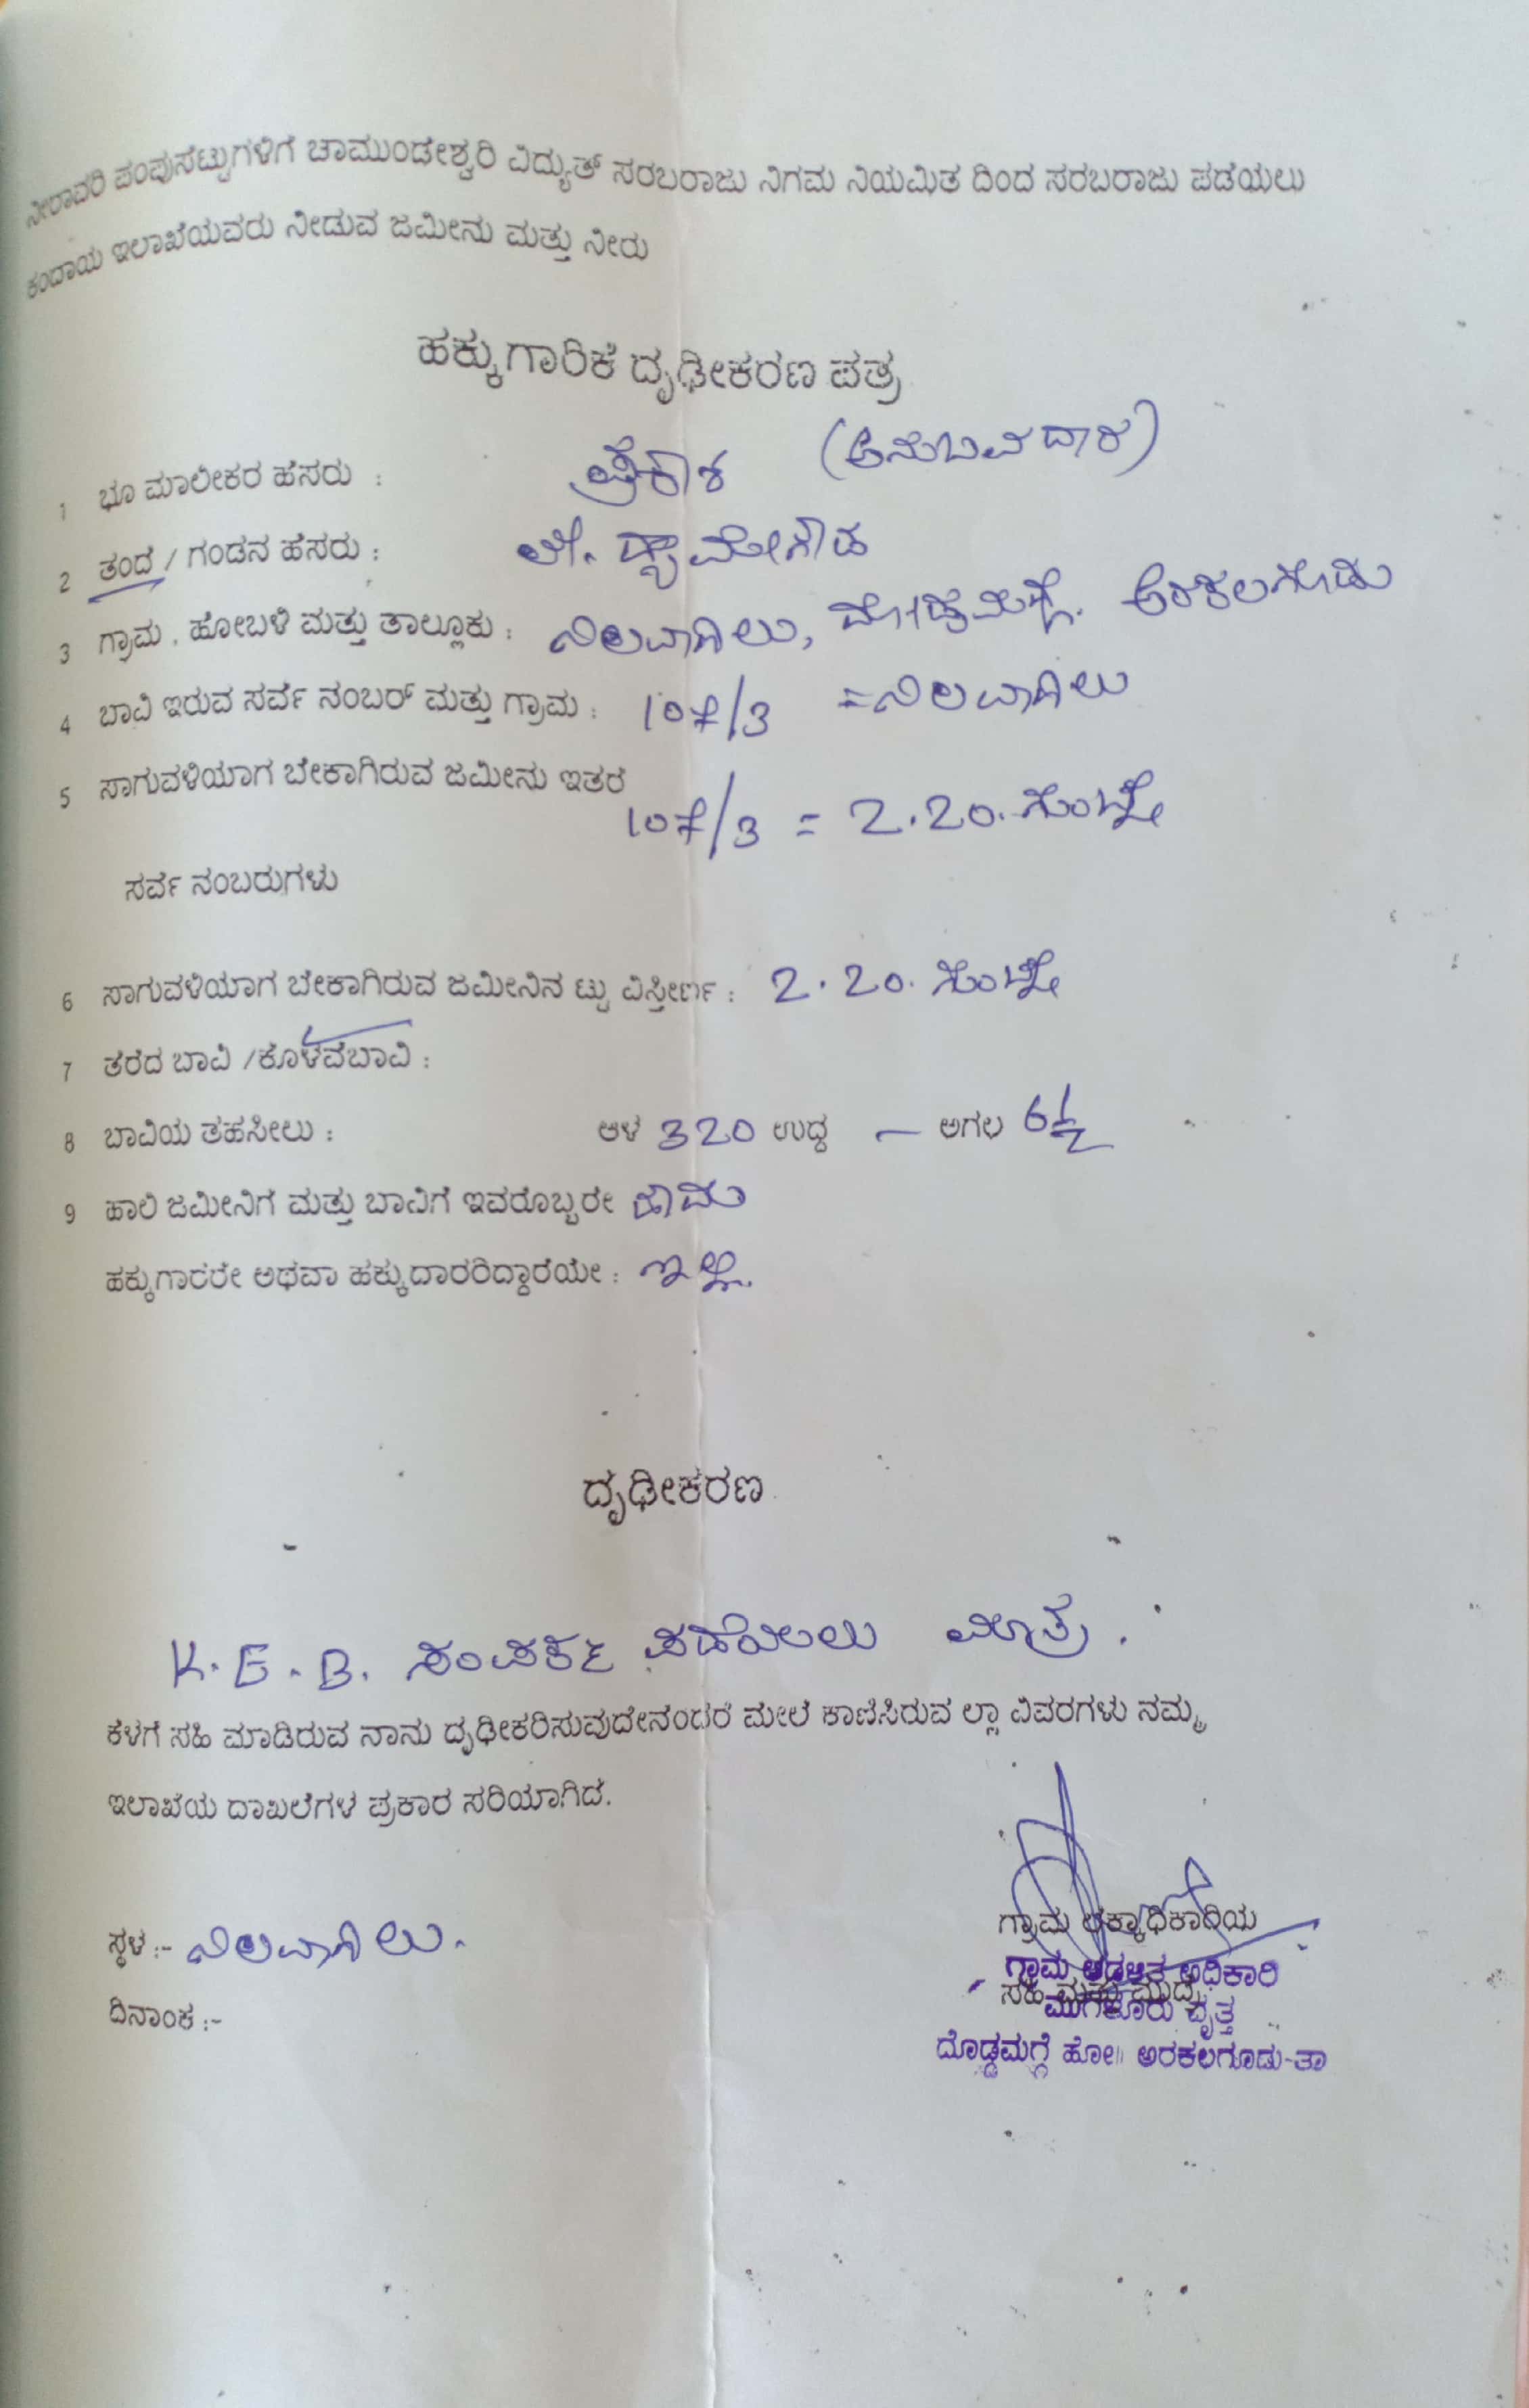 ನೀರಾವರಿ ಪಂಪುಸೆಟ್ಟುಗಳಿಗೆ ಚಾಮುಂಡೇಶ್ವರಿ ವಿದ್ಯುತ್ ಸರಬರಾಜು ನಿಗಮ ನಿಯಮಿತ ದಿಂದ ಸರಬರಾಜು ಪಡೆಯಲು
ಕಂದಾಯ ಇಲಾಖೆಯವರು ನೀಡುವ ಜಮೀನು ಮತ್ತು ನೀರು
ಹಕ್ಕುಗಾರಿಕೆ ದೃಢೀಕರಣ ಪತ್ರ
1 ಭೂ ಮಾಲೀಕರ ಹೆಸರು : ಪ್ರಕಾಶ (ಅನುಬವದಾರ)
2 ತಂದೆ / ಗಂಡನ ಹೆಸರು : ಲೇ. ದ್ಯಾವೇಗೌಡ
3 ಗ್ರಾಮ , ಹೋಬಳಿ ಮತ್ತು ತಾಲ್ಲೂಕು : ನಿಲವಾಗಿಲು, ದೊಡ್ಡಮಗ್ಗೆ. ಅರಕಲಗೂಡು
4 ಬಾವಿ ಇರುವ ಸರ್ವೆ ನಂಬರ್ ಮತ್ತು ಗ್ರಾಮ : 107/3 =ನಿಲವಾಗಿಲು
5 ಸಾಗುವಳಿಯಾಗ ಬೇಕಾಗಿರುವ ಜಮೀನು ಇತರೆ
107/3 = 2.20. ಗುಂಟೆ
ಸರ್ವೆ ನಂಬರುಗಳು
6 ಸಾಗುವಳಿಯಾಗ ಬೇಕಾಗಿರುವ ಜಮೀನಿನ ಟ್ಟು ವಿಸ್ತೀರ್ಣ : 2.20. ಗುಂಟೆ
7 ತೆರೆದ ಬಾವಿ /ಕೊಳವೆಬಾವಿ :
8 ಬಾವಿಯ ತಹಸೀಲು : ಆಳ 320 ಉದ್ದ — ಅಗಲ 6½
9 ಹಾಲಿ ಜಮೀನಿಗೆ ಮತ್ತು ಬಾವಿಗೆ ಇವರೊಬ್ಬರೇ ಹೌದು
ಹಕ್ಕುಗಾರರೇ ಅಥವಾ ಹಕ್ಕುದಾರರಿದ್ದಾರೆಯೇ : ಇಲ್ಲ.
ದೃಢೀಕರಣ
K.E.B. ಸಂಪರ್ಕ ಪಡೆಯಲು ಮಾತ್ರ.
ಕೆಳಗೆ ಸಹಿ ಮಾಡಿರುವ ನಾನು ದೃಢೀಕರಿಸುವುದೇನೆಂದರೆ ಮೇಲೆ ಕಾಣಿಸಿರುವ ಲ್ಲಾ ವಿವರಗಳು ನಮ್ಮ
ಇಲಾಖೆಯ ದಾಖಲೆಗಳ ಪ್ರಕಾರ ಸರಿಯಾಗಿದೆ.
ಗ್ರಾಮ ಲೆಕ್ಕಾಧಿಕಾರಿಯ
ಸ್ಥಳ :- ನಿಲವಾಗಿಲು.
ಗ್ರಾಮ ಆಡಳಿತ ಅಧಿಕಾರಿ
ಸಹಿ ಮತ್ತು ಮುದ್ರೆ
ಮುಗಳೂರು ವೃತ್ತ
ದಿನಾಂಕ :-
ದೊಡ್ಡಮಗ್ಗೆ ಹೋ॥ ಅರಕಲಗೂಡು-ತಾ